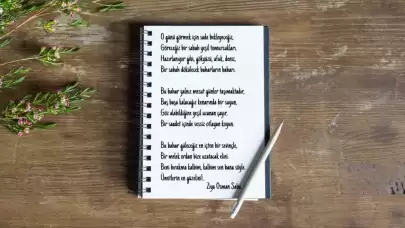 O günü görmek için sade bekleyeceğiz,
Göreceğiz bir sabah yeşil tomurcukları,
Hazırlanıyor gibi, gökyüzü, ufuk, deniz,
Bir sabah dökülecek baharların baharı.
Bu bahar yalnız mesut günler taşımaktadır,
Baş başa kalacağız kenarında bir suyun,
Göz alabildiğine yeşil uzanan çayır,
Bir saadet içinde sessiz otlayan koyun.
Bu bahar güleceğiz en içten bir sevinçle,
Bir melek ordan bize uzatacak elini
Beni bırakma kalbim, kalbim sen bana söyle
Ümitlerin en güzelini!..
Ziya Osman Saba